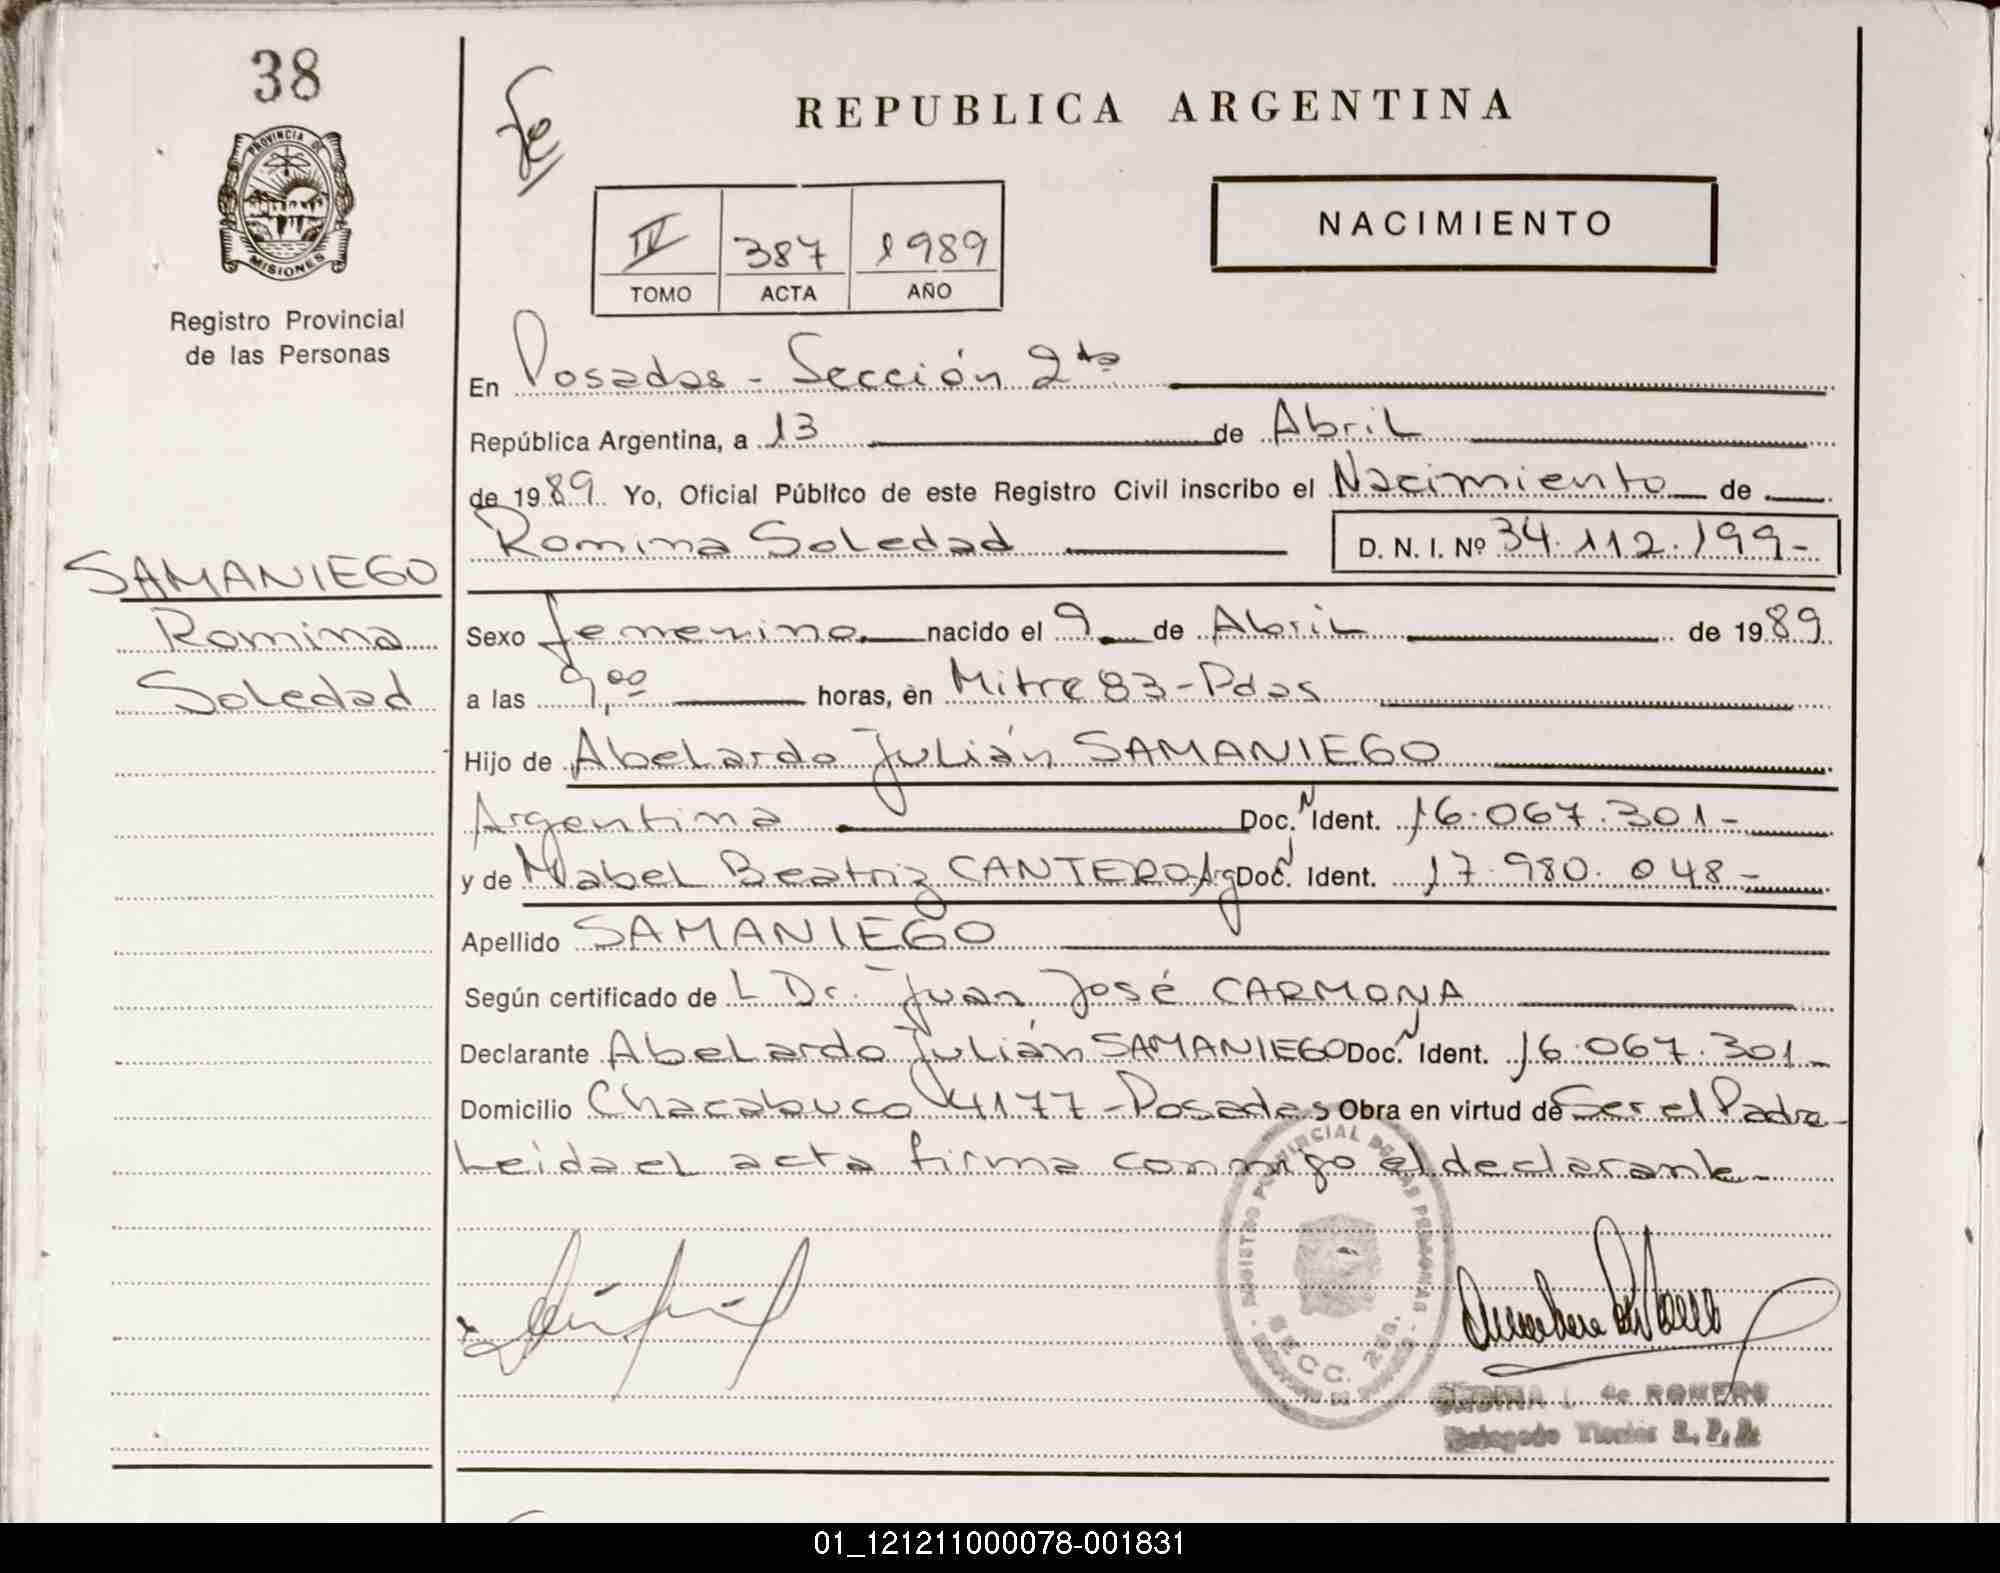 38
PROVINCIA DE
MISIONES
Registro Provincial
de las Personas
SAMANIEGO
Romina
Soledad
Fe
REPUBLICA ARGENTINA
NACIMIENTO
IV 387 1989
TOMO ACTA AÑO
En Posadas - Sección 2da
República Argentina, a 13 de Abril
de 1989 Yo, Oficial Público de este Registro Civil inscribo el Nacimiento de
Romina Soledad D. N. I. Nº 34.112.199-
Sexo femenino nacido el 9 de Abril de 1989
a las 9,00 horas, en Mitre 83 - Pdas
Hijo de Abelardo Julián SAMANIEGO
Argentina Doc. Ident. 16.067.301-
y de Mabel Beatriz CANTERO Arg Doc. Ident. 17.980.048-
Apellido SAMANIEGO
Según certificado de L Dr. Juan José CARMONA
Declarante Abelardo Julián SAMANIEGO Doc. Ident. 16.067.301-
Domicilio Chacabuco 4177 - Posadas Obra en virtud de Ser el Padre
Leida el acta firma conmigo el declarante-
REGISTRO PROVINCIAL DE LAS PERSONAS
SECC. 2da.
ONDINA L. de ROMERO
Delegado Titular R.P.P.
01_121211000078-001831